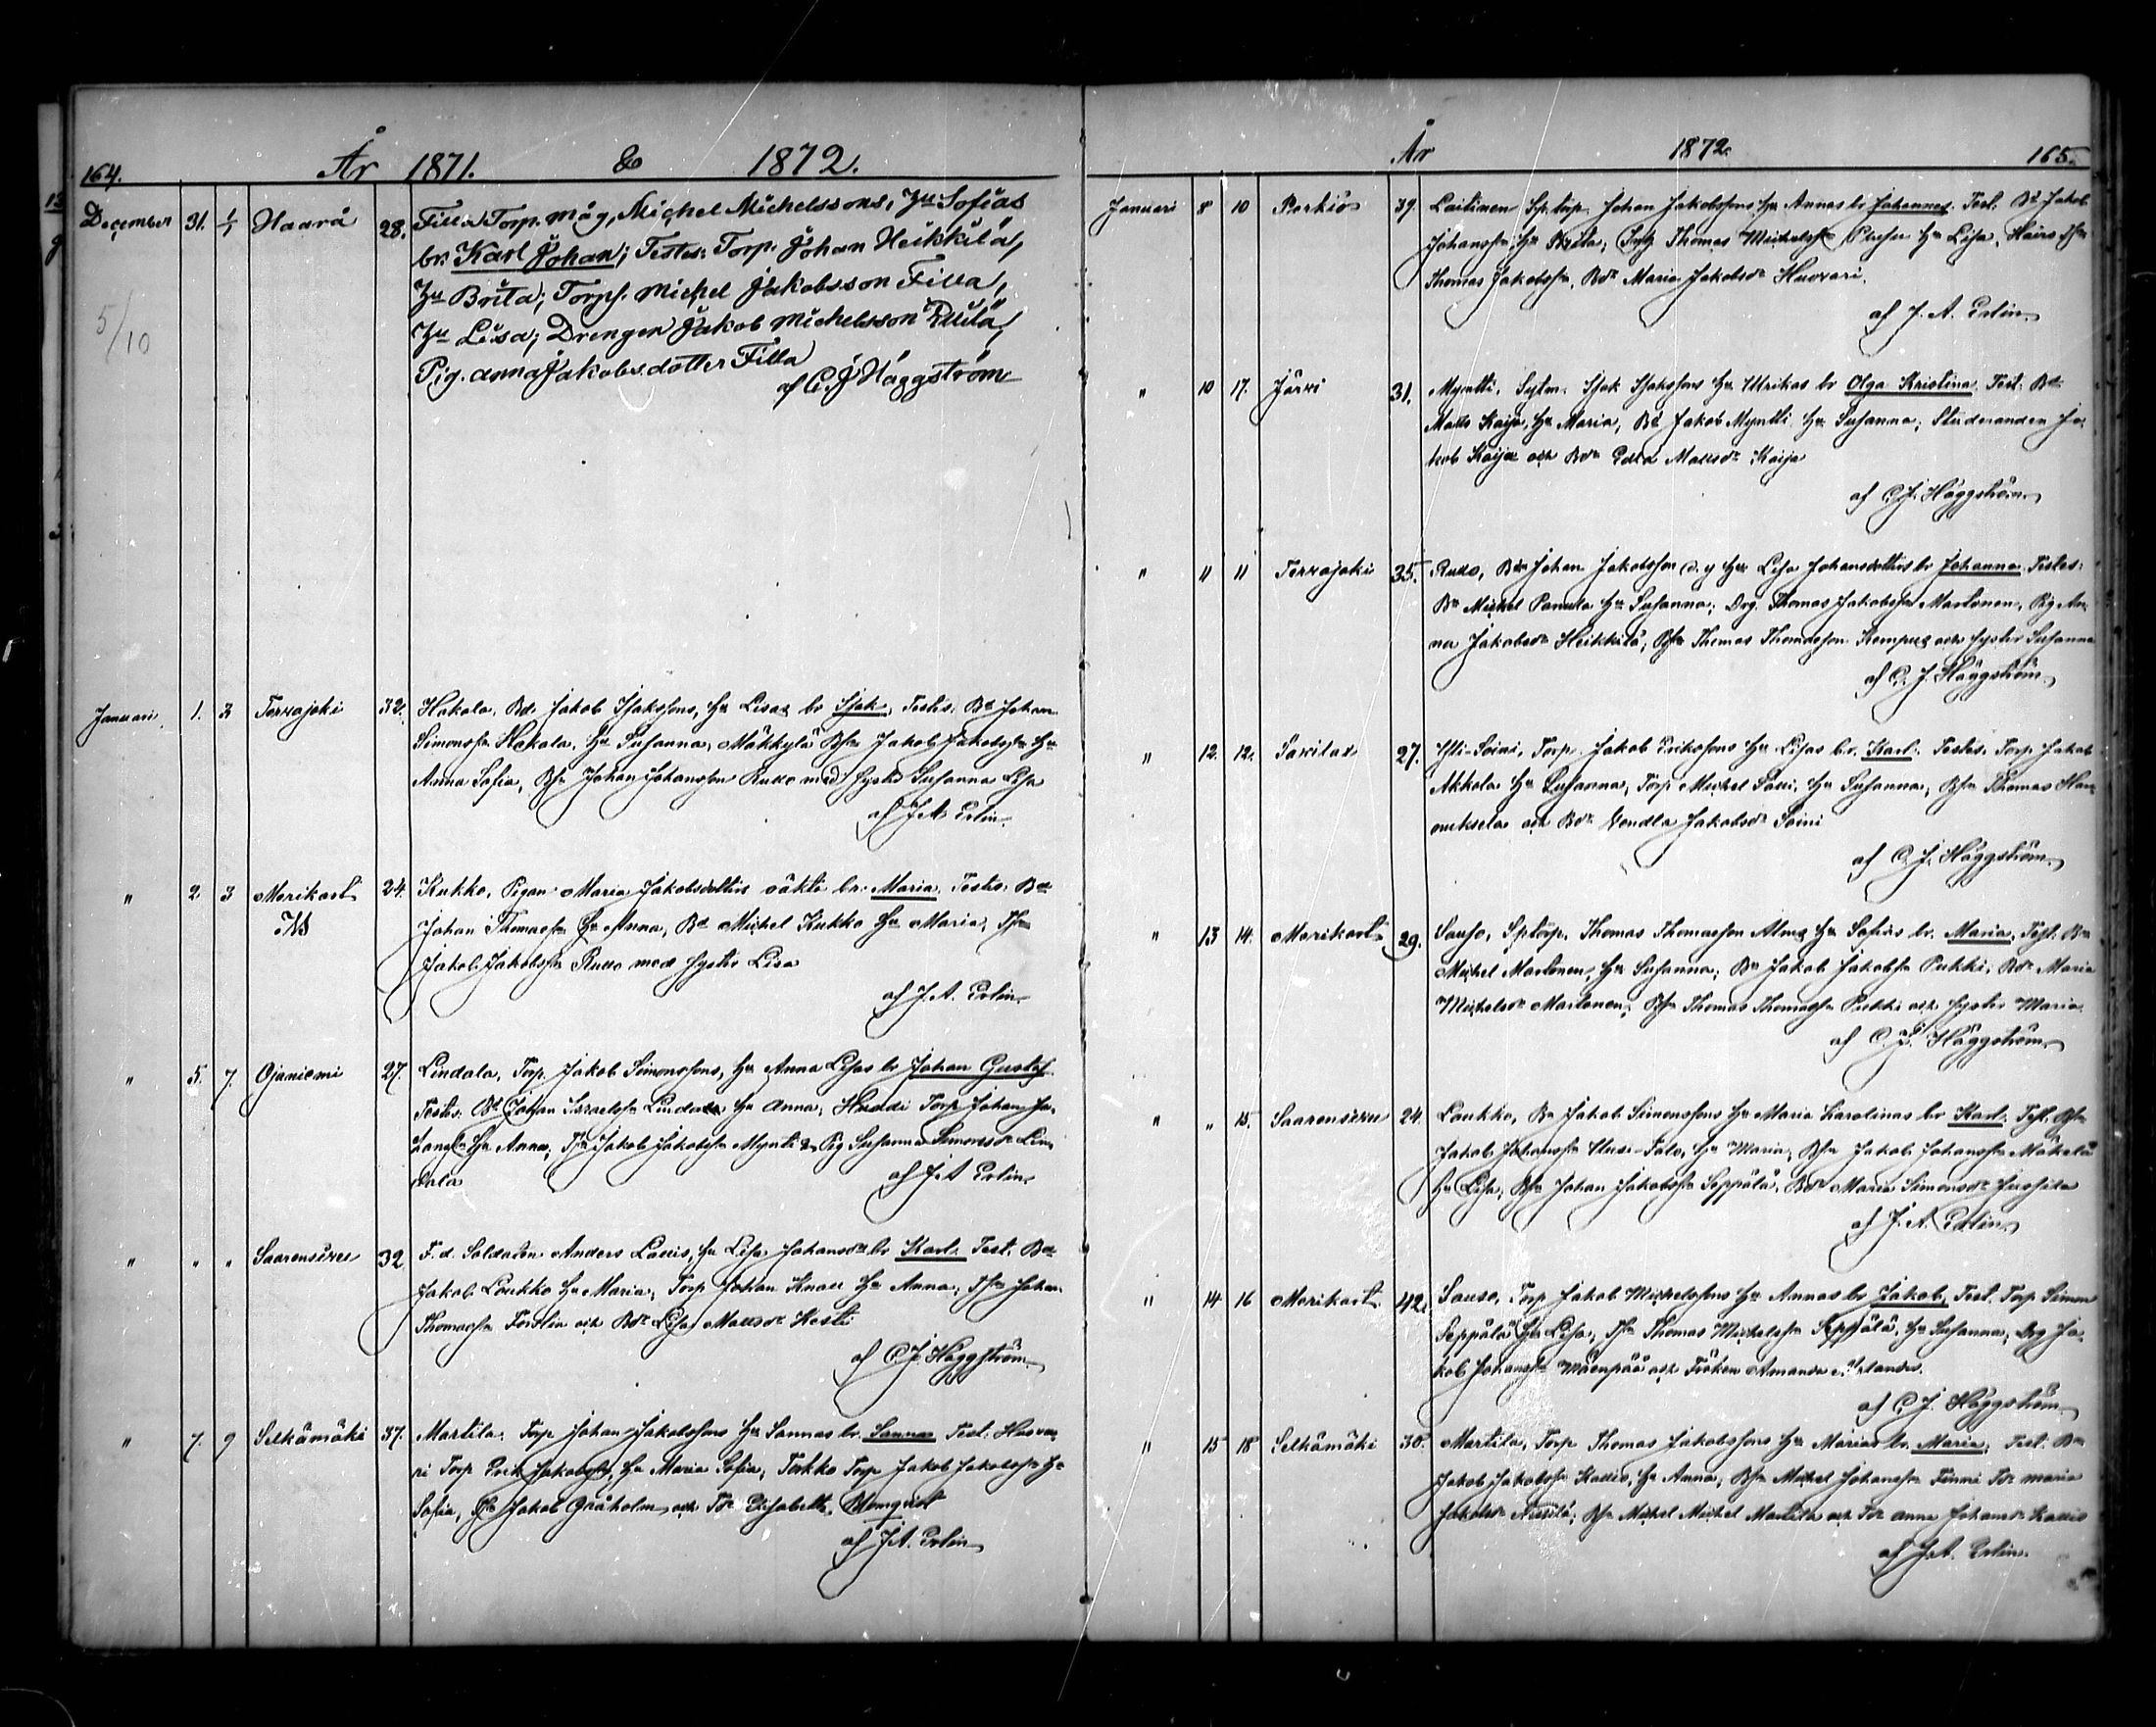 164. År 1871. & 1872.
December 31. 1/1 Haarå 28. Filla Torp. måg, Michel Michelssons, Hu Sofias
br. Karl Johan; Testes: Torp. Johan Heikkilä,
Hu Brita; Torps. Michel Jakobsson Filla,
5/10
Hu Lisa; Drengen Jakob Michelsson
Pig. Anna Jakobsdotter Filla
af C. J. Häggström
Januari 1. 2 Terrajoki 32. Hakola, Bd. Jakob Isakssons, Hu Lisas br Isak, Testes: Bd Johan
Simonss. Hakola, Hu Susanna, Mäkkylä Bs. Jakob Jakobss. Hu
Anna Sofia, Bs. Johan Johansson Ruko med syster Susanna Lisa
af J. A. Erlin.
" 2. 3 Merikart 24. Kukko, Pigan Maria Jakobsdotters oäkta br. Maria. Testes: Bd
Johan Thomass. Hu Anna, Bd Michel Kukko Hu Maria,
Jakob Jakobss. med syster Lisa
af J. A. Erlin.
" 5. 7. Ojaniemi 27. Lindala, Torp. Jakob Simonssons, Hu Anna Lisas br Johan Gustaf.
Testes: Bd Johan Israelss. Lindala Hu Anna, Torp Johan Jo-
hanss. Hu Anna, Jakob Jakobss. Myntti & Pig Susanna Simonsdr Lin-
dala
af J. A. Erlin.
" " " Saarensivu 32 F. d. Soldaten Anders Lauris, Hu Lisa Johansdr br Karl. Test. Bd
Jakob Loukko Hu Maria, Torp Johan Knau Hu Anna, Johan
Thomass. och Bdr Lisa Mattsdr
af C J. Häggström.
" 7. 9 Selkämäki 37. Martila, Torp Johan Jakobssons Hu Sannas br. Sanna Test. Huova-
ri Torp Erik Jakobss, Hu Maria Sofia, Torp Jakob Jakobss. Hu
Sofia, Jakob Gråholm och Elisabeth Blomqvist
af J. A. Erlin.
År 1872. 165.
Januari 8 10 Perkiö 39. Laitinen Johan Jakobssons Hu Annas br Johannes. Test. Bd Jakob
Johanss. Hu Brita, Thomas Michelss. Hu Lisa, Hairo
Thomas Jakobss, Bdr Maria Jakobsdr Huovari.
af J. A. Erlin.
" 10 17. Järvi 31. Myntti, Sytn. Isak Isakssons Hu Ulrikas br Olga Kristina. Test. Bd
Matts Kaija, Hu Maria, Bd Jakob Myntti Hu Susanna, Studeranden Ja-
kob Kaija och Bdr Edla Mattsdr Kaija
af C. J. Häggström.
" 11 11 Terrajoki 35. Johan Jakobsson d. y Hu Lisa Johansdotters br Johanna. Testes:
Bd Michel Panula Hu Susanna; Drg. Thomas Jakobss. Martonen, Pig An-
na Jakobsdr Heikkilä, Bs. Thomas Thomasson Kempas och syster Susanna
af C. J. Häggström.
" 12. 12. Sarilax 27. Yli-Soini, Torp Jakob Erikssons Hu Lisas br. Karl. Testes: Torp Jakob
Akkola Hu Susanna, Torp Michel Hu Susanna, Bs. Thomas Han-
nuksela och Bdr Vendla Jakobsdr Soini
af C. J. Häggström.
" 13 14. Merikart 29. Sauso, Thomas Thomasson Hu Sofias br. Maria. Test. Bd
Michel Martonen, Hu Susanna, Bd Jakob Jakobss. Pukki, Bdr Maria
Michelsdr Martonen, Bs. Thomas Thomass. Pukki och syster Maria.
af C. J. Häggström.
" " 15. Saarensivu 24. Loukko, Bd Jakob Simonssons Hu Maria Karolinas br Karl. Test. Bs.
Jakob Johanss. Uusi-Talo, Hu Maria, Bs. Jakob Johanss. Mäkelä
Hu Lisa, Bs. Johan Jakobss. Seppälä, Bdr Maria Simonsdr
af J. A. Erlin.
" 14 16 Merikart 42. Sauso, Torp Jakob Michelssons Hu Annas br Jakob, Test. Torp Simon
Seppälä Hu Lisa, Thomas Michelss. Seppälä, Hu Susanna, Drg Ja-
kob Johanss. Mäenpää och Fröken Amanda
af C. J. Häggström.
" 15 18 Selkämäki 30. Martila, Torp Thomas Jakobssons Hu Marias br. Maria. Test. Bd
Jakob Jakobss. Hu Anna, Bs. Michel Johanss. Maria
Jakobsdr Bs. Michel Michel Martila och Anna Johansdr
af J. A. Erlin.